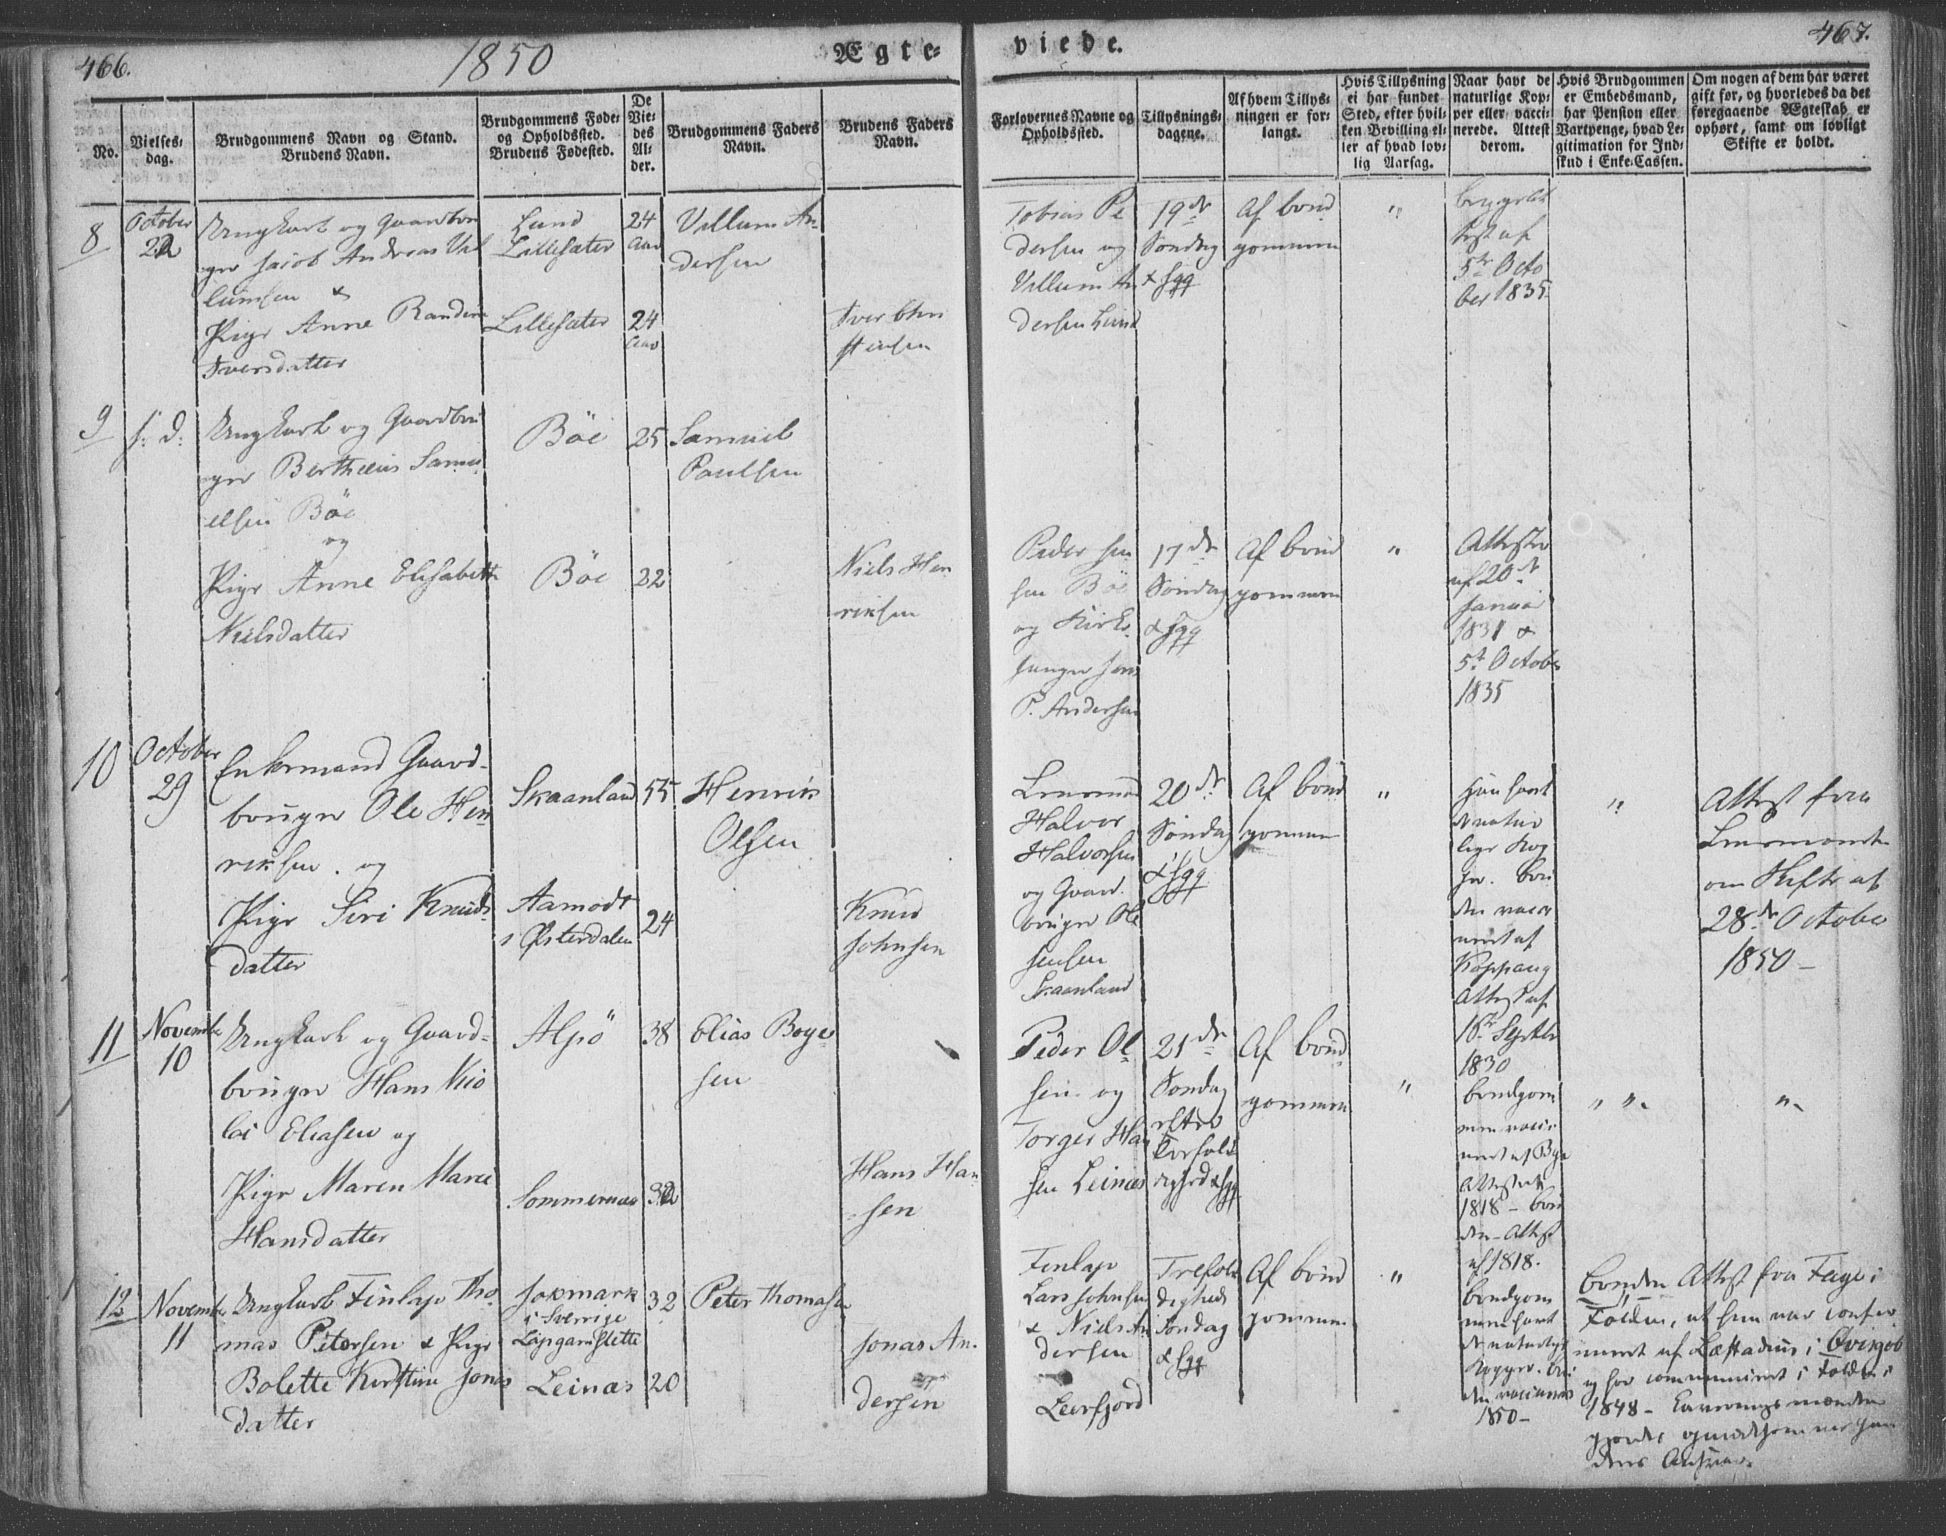 466.
1850
Ægte-
viede.
467.
No.
Vielses-
dag.
Brudgommens Navn og Stand.
Brudens Navn.
Brudgommens Føde-
og Opholdssted.
Brudens Fødested.
De
Vie-
des
Al-
der.
Brudgommens Faders
Navn.
Brudens Faders
Navn.
Forlovernes Navne og
Opholdssted.
Tillysnings-
dagene.
Af hvem Tillys-
ningen er for-
langt.
Hvis Tillysning
ei har fundet
Sted, efter hvil-
ken Bevilling el-
ler af hvad lov-
lig Aarsag.
Naar havt de
naturlige Kop-
per eller vacci-
nerede. Attest
derom.
Hvis Brudgommen
er Embedsmand,
har Pension eller
Vartpenge, hvad Le-
gitimation for Ind-
skud i Enke-Cassen.
Om nogen af dem har været
gift før, og hvorledes da det
foregaaende Ægteskab er
ophørt, samt om lovligt
Skifte er holdt.
8
October
22
Ungkarl og Gaardbru
ger Jacob Andreas Vil
lumsen &
Pige Anne Randine
Iversdatter
Lund
Lillesæter
Lillesæter
24
Aar
24
Aar
Villum An-
dersen
Iver Chri
stensen
Tobias Pe
dersen og
Villum An
dersen Lund
19de
Søndag
& fgg
Af brud
gommen
"
begge
Attest af
5te Octo
ber 1835
9
s. d.
Ungkarl og Gaardbru
ger Bertheus Samu
elsen Böe
og
Pige Anne Elisabeth
Nielsdatter
Böe
Böe
25
22
Samuel
Paulsen
Niels Hen
riksen
Peder Jen
sen Böe
og Kirke-
sanger Jens
P. Andersen
17de
Søndag
& fgg
Af brud
gommen
"
Attester
af 20de
Januar
1831 &
5te October
1835
10
October
29
Enkemand Gaard-
bruger Ole Hen
riksen og
Pige Siri Knuds
datter
Skaanland
Aamodt
i Østerdalen
55
24
Henrik
Olsen
Knud
Johnsen
Lensmand
Halvor
Halvorsen
og Gaard-
bruger Ole
Jensen
Skaanland
20de
Søndag
& fgg
Af brud
gommen
"
Han havt
de natur
lige Kop
per. bru
den vacci
neret af
Koppang
Attest af
16de Septbr
1830
"
Attest fra
Lensmanden
om Skifte af
28de October
1850 –
11
November
10
Ungkarl og Gaard-
bruger Hans Nico
lai Eliasen og
Pige Maren Marie
Hansdatter
Alsiö
Sommernæs
38
32
Elias Boye
sen
Hans Han
sen
Peder Ol
sen og
Torger Han
sen Leinæs
21de
Søndag
efter
Trefoldi
gehed & fgg
Af brud
gommen
"
brudgom
men vacci
neret af Bye
Attest af
1818 – bru
den – Attest
af 1818.
" "
"
12
November
11
Ungkarl Finlap Tho
mas Petersen & Pige
Bolette Kirstine Jonas
datter
Jokmark
i Sverrige
Leinæs
32
20
Peter Thomasen
Jonas An-
dersen
Finlap
Lars Johnsen
& Niels An
dersen
Leerfjord
Trefol
digheds
Søndag
& fgg
Af brud
gommen
"
brudgom
men havt
de naturlige
Kopper. bru
den vaccineret
1850 –
bruden Attest fra Fage i
Folden, at hun var confir
meret af Læstadius i
og har communiceret i Folden i
1848 –